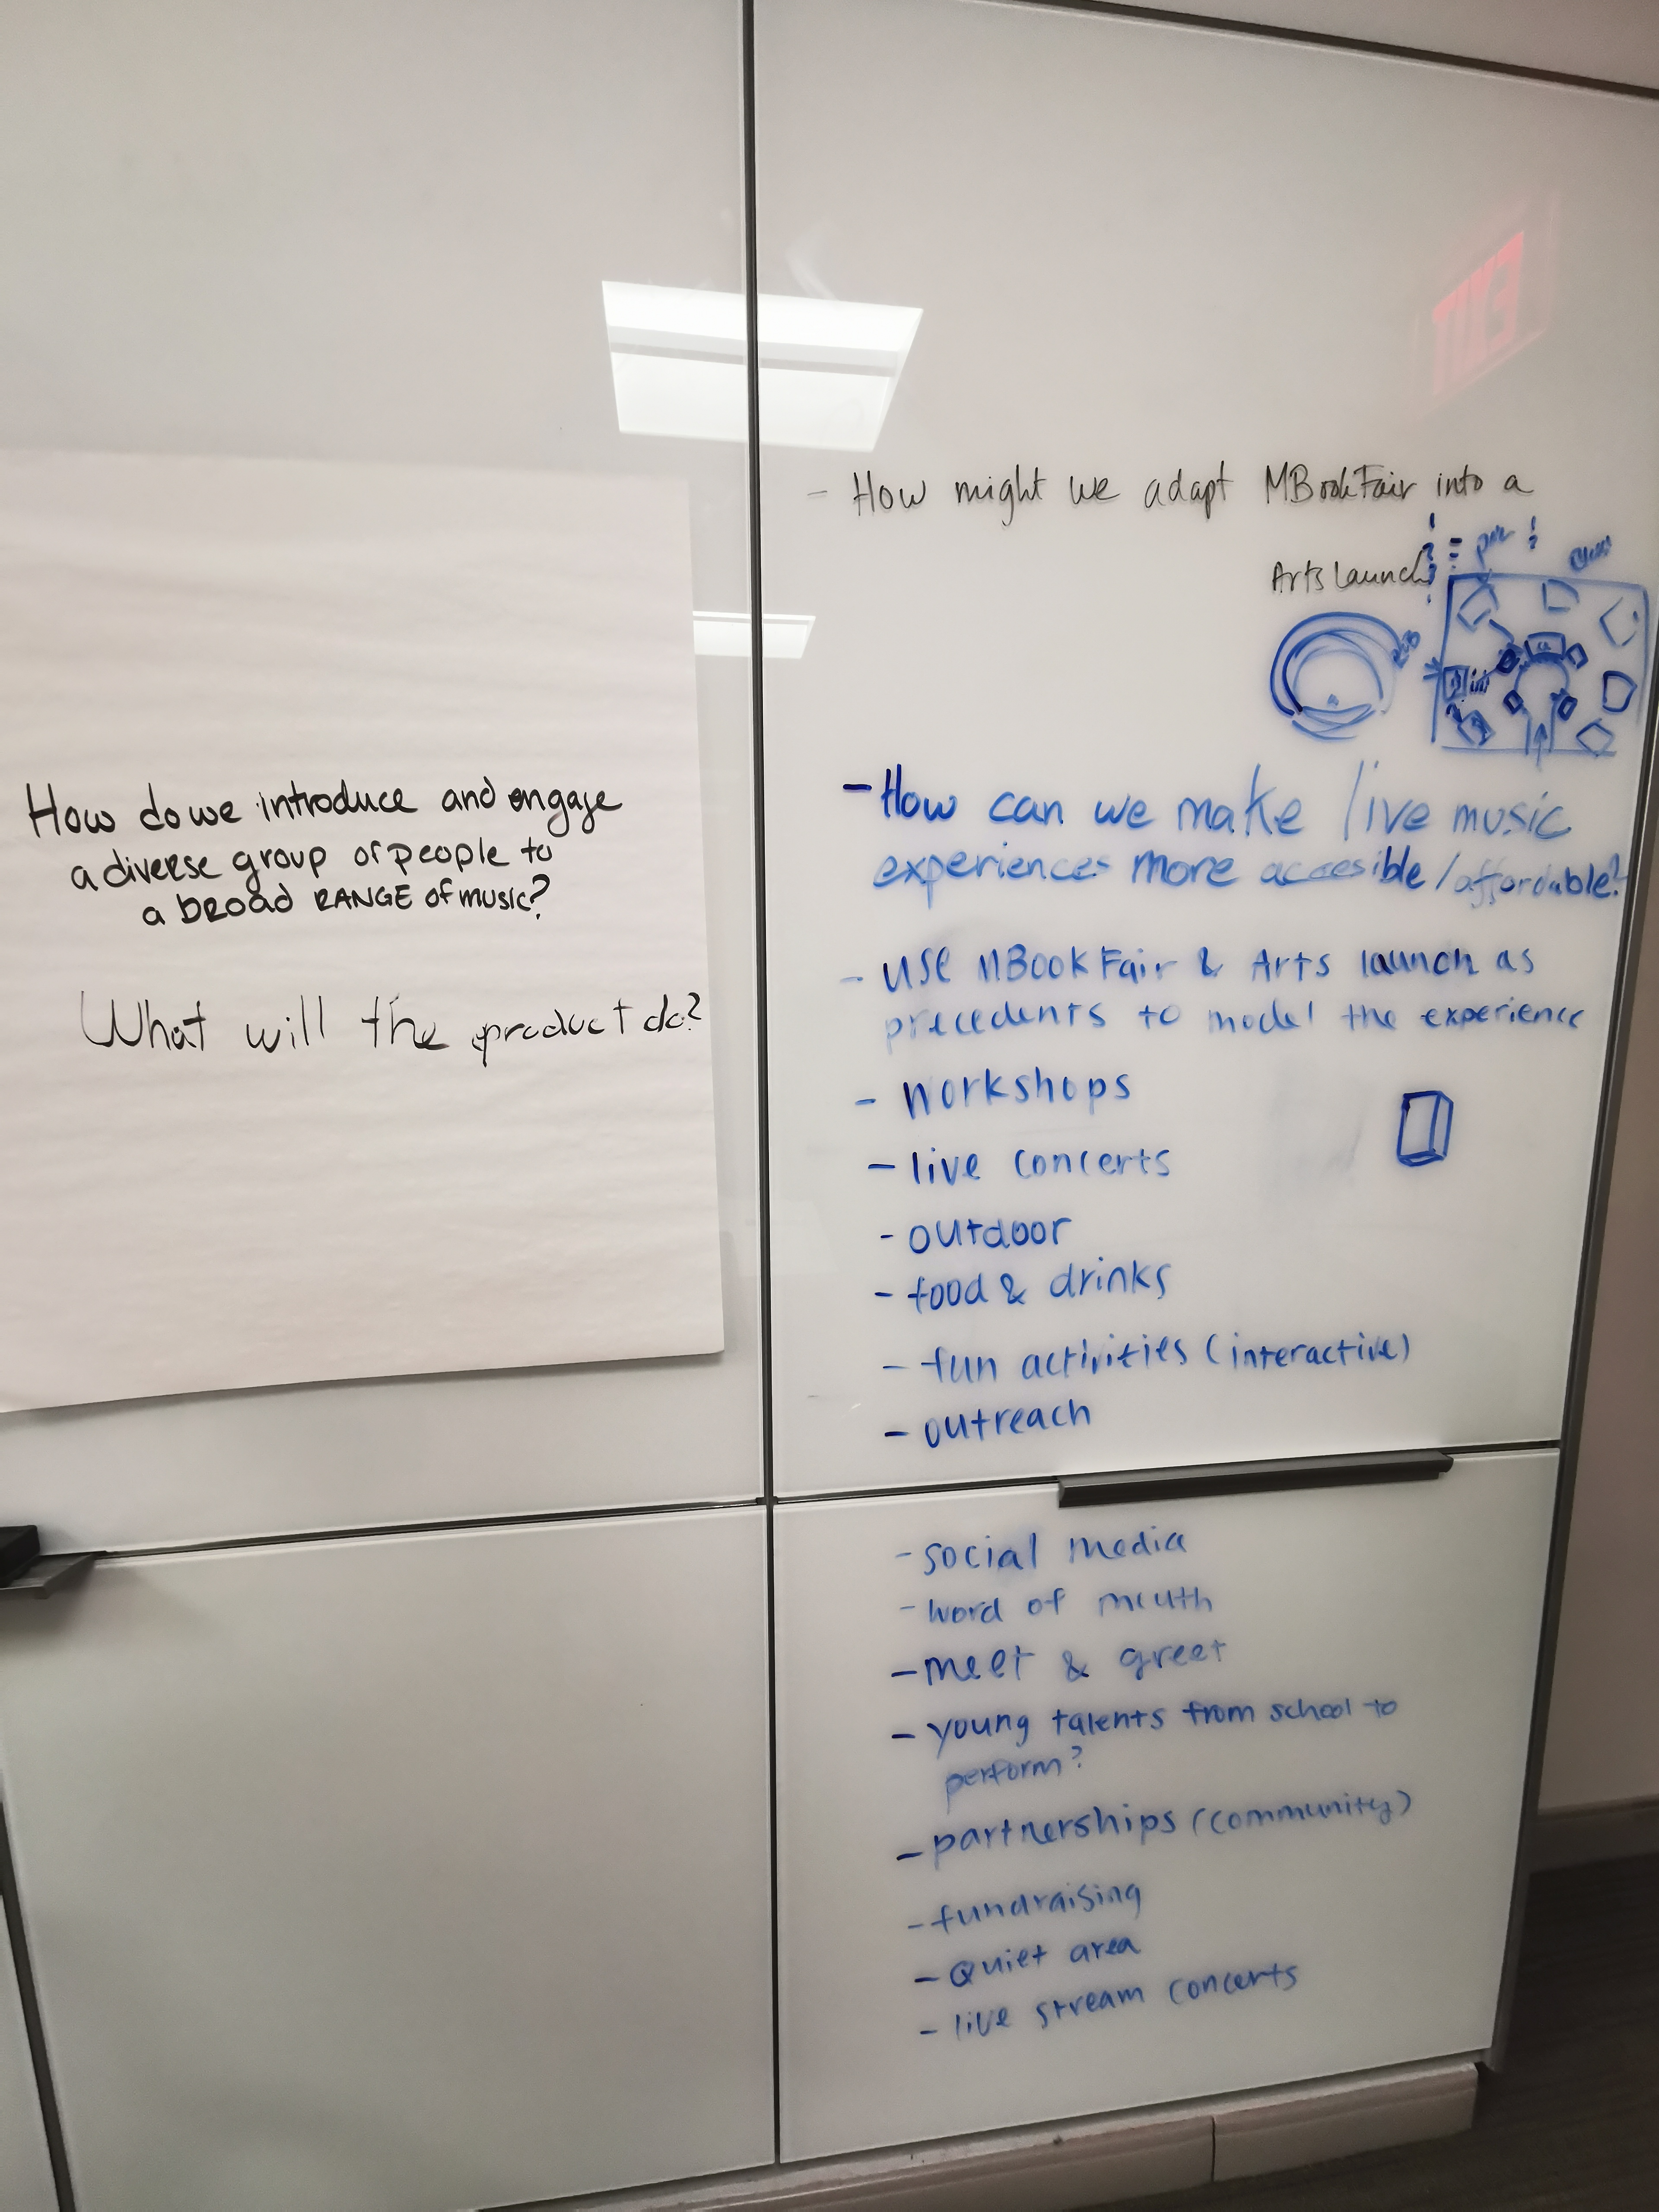 How do we introduce and engage
a diverse group of people to
a broad RANGE of music?
What will the product do?
- How might we adapt MBookFair into a
Arts Launch
- How can we make live music
experiences more accesible/affordable?
- USE MBook Fair & Arts launch as
precedents to model the experience
- workshops
- live concerts
- outdoor
- food & drinks
- fun activities (interactive)
- outreach
- social media
- word of mouth
- meet & greet
- young talents from school to
perform?
- partnerships (community)
- fundraising
- Quiet area
- live stream concerts